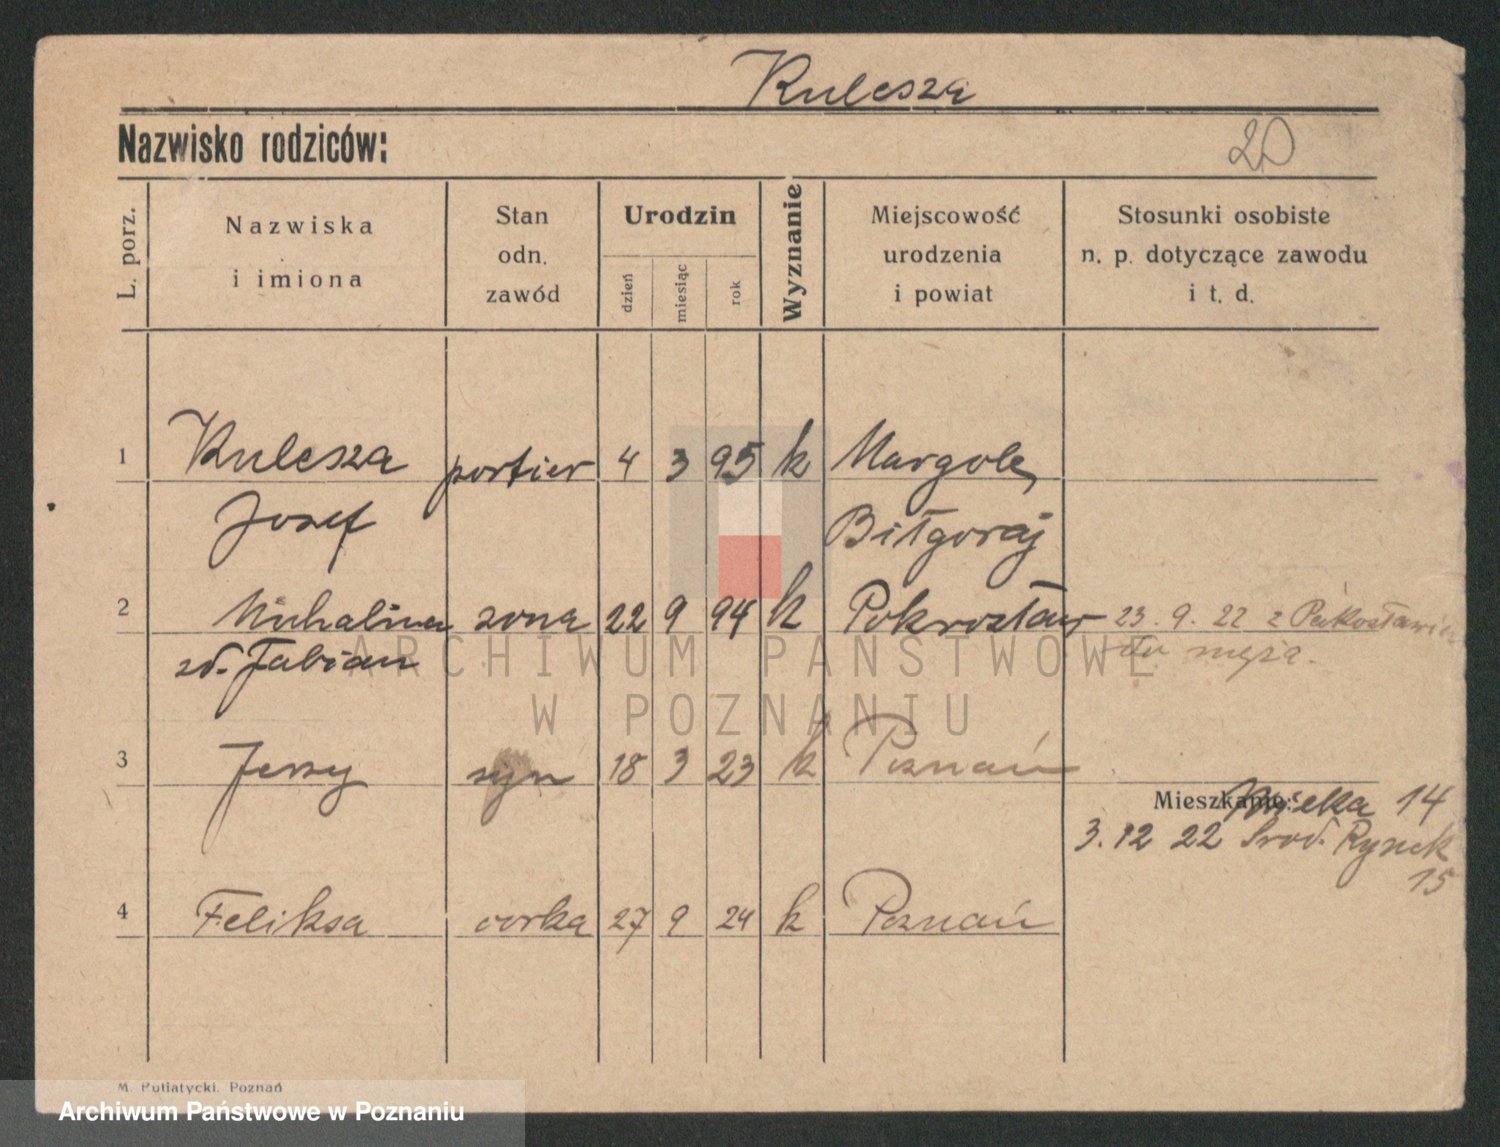 Kulesza
Nazwisko rodziców:
20
L. porz.
Nazwiska
i imiona
Stan
odn.
zawód
Urodzin
dzień
miesiąc
rok
Wyznanie
Miejscowość
urodzenia
i powiat
Stosunki osobiste
n. p. dotyczące zawodu
i t. d.
1 Kulesza portier 4 3 95 k Margole,
Josef Biłgoraj
2 Michalina żona 22 9 94 k Pokrosław 23. 9. 22 z
zd. Fabian do męża.
ARCHIWUM PAŃSTWOWE
W POZNANIU
3 Jerzy syn 18 3 23 k Poznań
Mieszkanie: 14
3. 12 22 Srod. Rynek
15
4 Feliksa corka 27 9 24 k Poznań
M. Putiatycki. Poznań
Archiwum Państwowe w Poznaniu